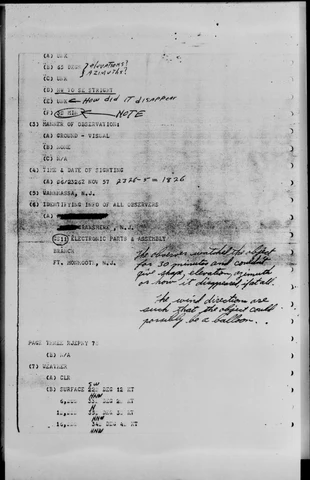 (A) UNK
(B) 45 DEGR } elevations?
(C) UNK } azimuths?
(D) UP TO SE STRIGHT
(E) UNK ← How did it disappear
(F) 30 MIN ← NOTE
(3) MANNER OF OBSERVATION:
(A) GROUND - VISUAL
(B) NONE
(C) N/A
(4) TIME & DATE OF SIGHTING
(A) 06/2326Z NOV 57 2326-5 = 1826
(5) WANAMASSA, N.J.
(6) IDENTIFYING INFO OF ALL OBSERVERS
(A)
N.J.
ELECTRONIC PARTS & ASSEMBLY
BRANCH
FT. MONMOUTH, N.J.
The observer watched the object
for 30 minutes and couldnt
give shape, elevation, azimuth
or how it disappeared, if at all.
The wind directions are
such that the object could
possibly be a balloon.
PAGE THREE RJEPRY 72
(B) N/A
(7) WEATHER
(A) CLR
SW
(B) SURFACE DEG 12 KT
NNW
6,000 33 DEG 20 KT
N
DEG 3 KT
NNW
16,000 34 DEG 4 KT
NNW